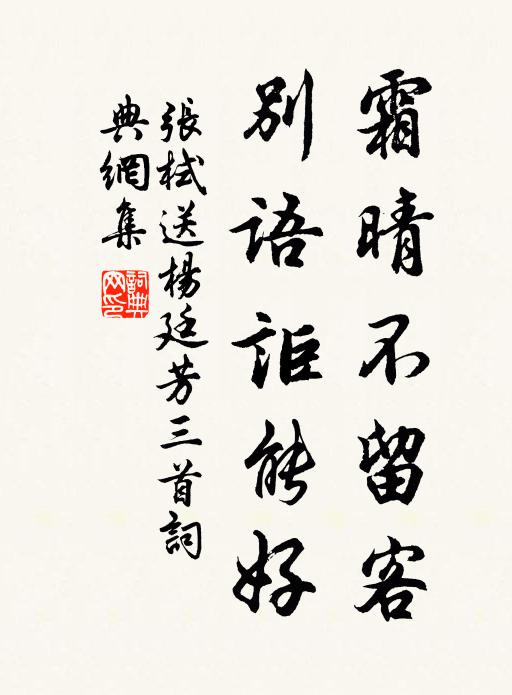 霜晴不留客
別語詎能好
張栻送楊廷芳三首詞
典網集
詞典網印